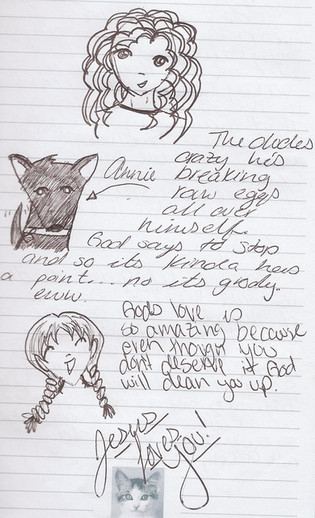 The dudes
crazy hes
Annie breaking
raw eggs
all over
himself.
God says to stop
and so its kinda hers
a point... no its grody.
eww.
Gods love is
so amazing because
even though you
dont deserve it God
will clean you up.
Jesus
loves
You!